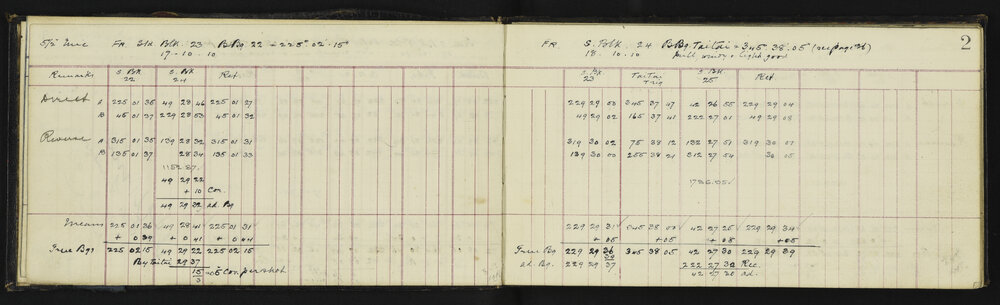 5½" Inst FR. Std Blk. 23 B.Bg. 22 = 225° 02' 15"
17 - 10 - 10
Remarks S. Blk 22 S. Blk 24 Ret.
Direct A 225 01 35 49 28 46 225 01 27
B 45 01 37 229 28 53 45 01 32
Reverse A 315 01 35 139 28 32 315 01 31
B 135 01 37 28 34 135 01 33
1152.87.
49 29 22
+ 10 Con.
49 29 32 ad. Bg
Means 225 01 36 49 28 41 225 01 31
+ 0 39 + 0 41 + 0 44
True Bgs 225 02 15 49 29 22 225 02 15
By Taitai 29 37
15 = 05 Con. per shot
3
FR S. Blk. 24 B.Bg. Taitai = 345° 38' 05" (see page 36) 2
18 . 10 . 10 Still windy & light good
S. Blk 23 Taitai Trig S Blk 25 Ret
229 29 50 345 37 47 42 26 55 229 29 04
49 29 02 165 37 41 222 27 01 49 29 08
319 30 02 75 38 12 132 27 51 319 30 07
139 30 00 255 38 21 312 27 54 30 05
1786.05.
229 29 31 345 38 0 42 27 25 229 29 34
+ 05 + 05 + 05 + 05
True Bg 229 29 36 345 38 05 42 27 30 229 29 39
39
ad. Bg. 229 29 37 222 27 32 Rec.
42 27 20 ad.